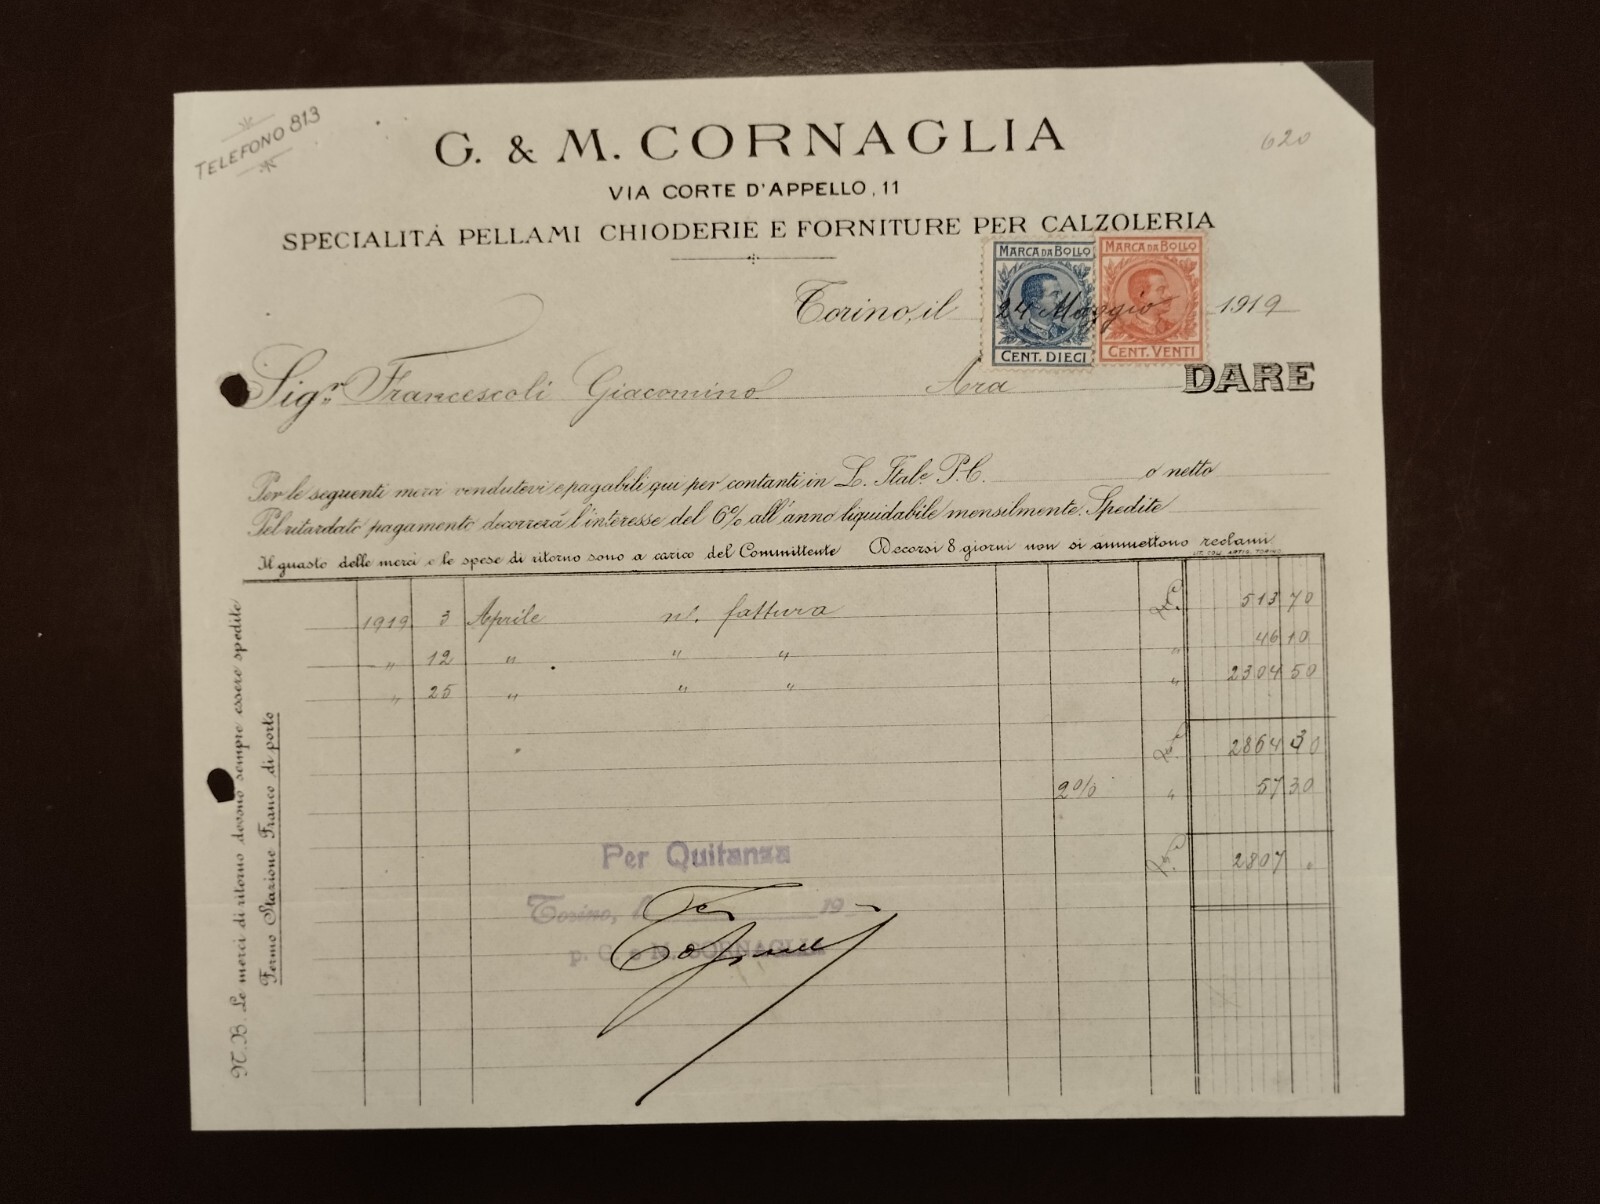 TELEFONO 813
G. & M. CORNAGLIA
620
VIA CORTE D'APPELLO, 11
SPECIALITÀ PELLAMI CHIODERIE E FORNITURE PER CALZOLERIA
MARCA DA BOLLO MARCA DA BOLLO
Torino, il 24 Maggio 1919
CENT. DIECI CENT. VENTI
Sigr. Francescoli Giacomino Ara DARE
Per le seguenti merci vendutevi e pagabili qui per contanti in L. Itale P.C. o netto
Pel ritardato pagamento decorrerà l'interesse del 6% all'anno liquidabile mensilmente. Spedite
Il guasto delle merci e le spese di ritorno sono a carico del Committente Decorsi 8 giorni non si ammettono reclami
N.B. Le merci di ritorno devono sempre essere spedite
Fermo Stazione Franco di porto
1919 3 Aprile n/. fattura 513 70
" 12 " " " " 46 10
" 25 " " " " 2304 50
2864 30
2% " 57 30
2807 "
Per Quitanza
Torino, 19
p. G. e M. CORNAGLIA